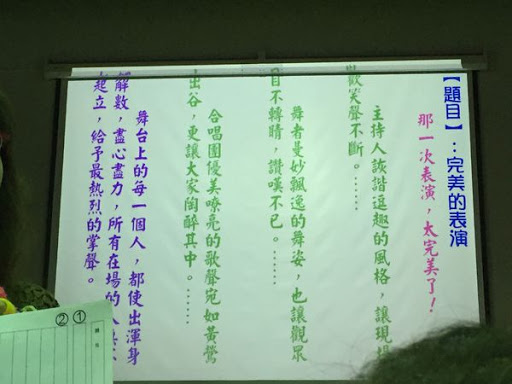 【題目】:完美的表演
那一次表演,太完美了!
主持人詼諧逗趣的風格,讓現場
歡笑聲不斷。……
舞者曼妙飄逸的舞姿,也讓觀眾
目不轉睛,讚嘆不已。……
合唱團優美嘹亮的歌聲宛如黃鶯
出谷,更讓大家陶醉其中。……
舞台上的每一個人,都使出渾身
解數,盡心盡力,所有在場的人
起立,給予最熱烈的掌聲。
① ②